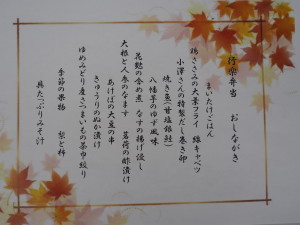 行楽弁当 おしながき
まいたけごはん
鶏ささみの大葉フライ 線キャベツ
小澤さんの特製だし巻き卵
焼き魚(甘塩銀鮭)
八幡芋のゆず風味
花麩の含め煮 なすの揚げ浸し
大根と人参のなます 茗荷の酢漬け
あけぼの大豆の串
きゅうりのぬか漬け
ゆめみどり産さつまいもの茶巾絞り
季節の果物 梨と柿
具たっぷりみそ汁